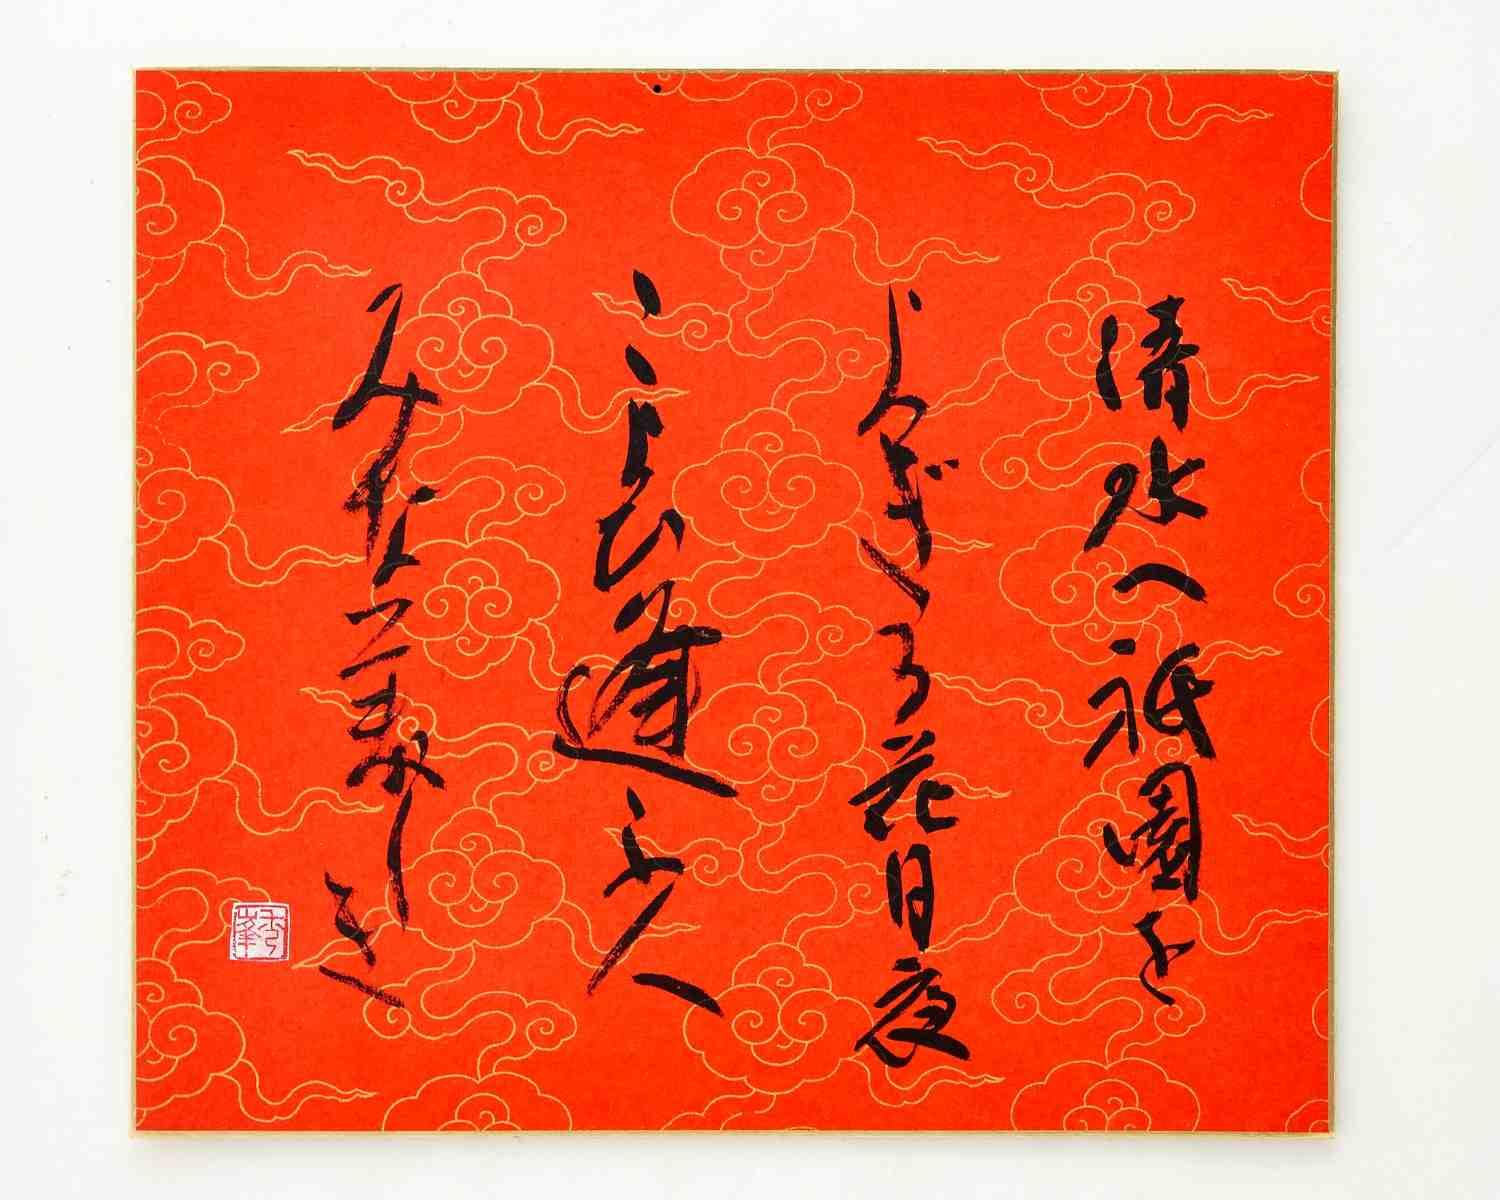 清水へ祇園を
よぎる花月夜
こよひ逢ふ人
みなうつくしき
秀峯